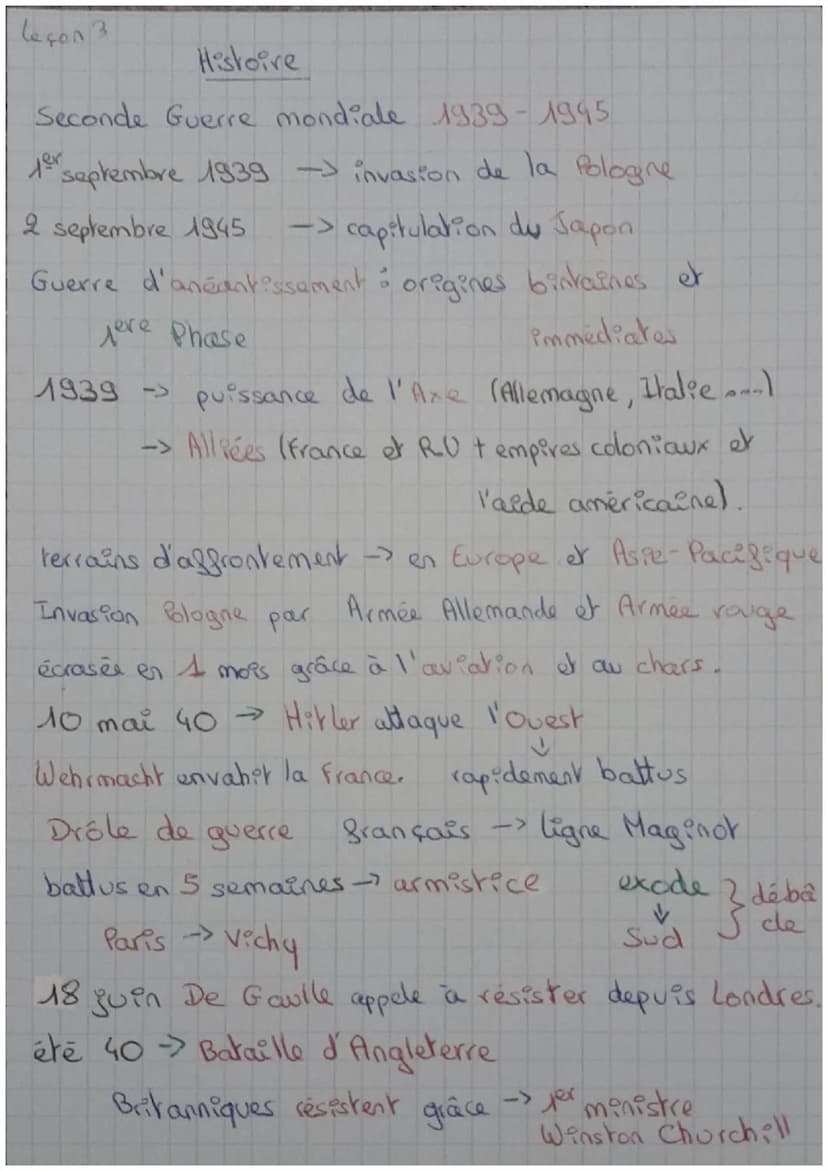 Leçon 3
Histoire
Seconde Guerre mondiale 1939-1945
1er septembre 1939 -> invasion de la Pologne
2 septembre 1945 -> capitulation du Japon
Guerre d'anéantissement : origines lointaines et
1ere Phase immédiates
1939 -> puissance de l'Axe (Allemagne, Italie ....)
-> Alliées (France et RU + empires coloniaux et
l'aide américaine).
terrains d'affrontement -> en Europe et Asie-Pacifique
Invasion Pologne par Armée Allemande et Armée rouge
écrasée en 1 mois grâce à l'aviation et au chars.
10 mai 40 -> Hitler attaque l'Ouest
↓
Wehrmacht envahit la France. rapidement battus
Drôle de guerre français -> ligne Maginot
battus en 5 semaines -> armistice exode } débâ
↓
Paris -> Vichy Sud cle
18 juin De Gaulle appele à résister depuis Londres.
été 40 -> Bataille d'Angleterre
Britanniques résistent grâce -> 1er ministre
Winston Churchill